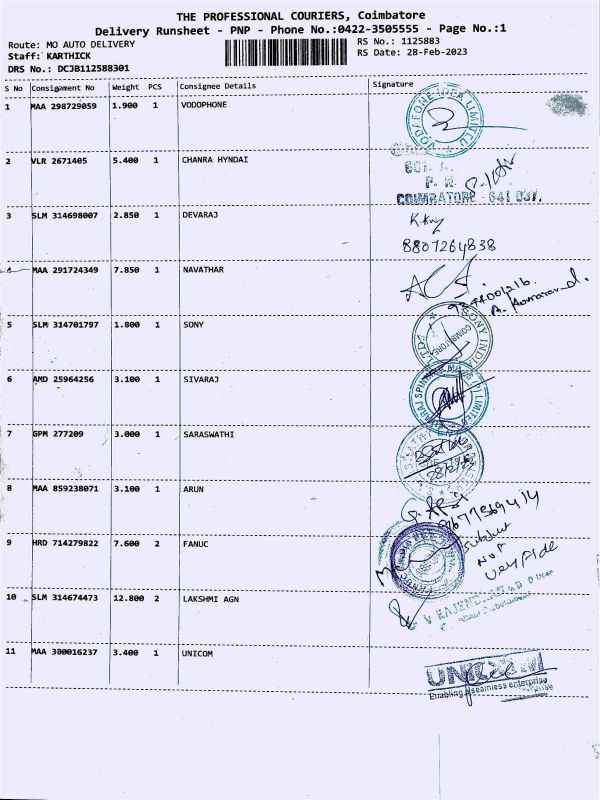 THE PROFESSIONAL COURIERS, Coimbatore
Delivery Runsheet - PNP - Phone No.:0422-3505555 - Page No.:1
Route: MO AUTO DELIVERY RS No.: 1125883
Staff: KARTHICK RS Date: 28-Feb-2023
DRS No.: DCJB112588301
S No Consignment No Weight PCS Consignee Details Signature
1 MAA 298729059 1.900 1 VODOPHONE
VODAFONE IDEA LIMITED
2 VLR 2671405 5.400 1 CHANRA HYNDAI
P. N
COIMBATORE - 641 037.
3 SLM 314698007 2.850 1 DEVARAJ
8807264838
4 MAA 291724349 7.850 1 NAVATHAR
9344001216
5 SLM 314701797 1.800 1 SONY
SONY INDIA
LTD
COIMBATORE
6 AMD 25964256 3.100 1 SIVARAJ
7 GPM 277209 3.000 1 SARASWATHI
8 MAA 859238071 3.100 1 ARUN
9 HRD 714279822 7.600 2 FANUC
Not
10 SLM 314674473 12.800 2 LAKSHMI AGN
11 MAA 300016237 3.400 1 UNICOM
Enabling seamless enterprise